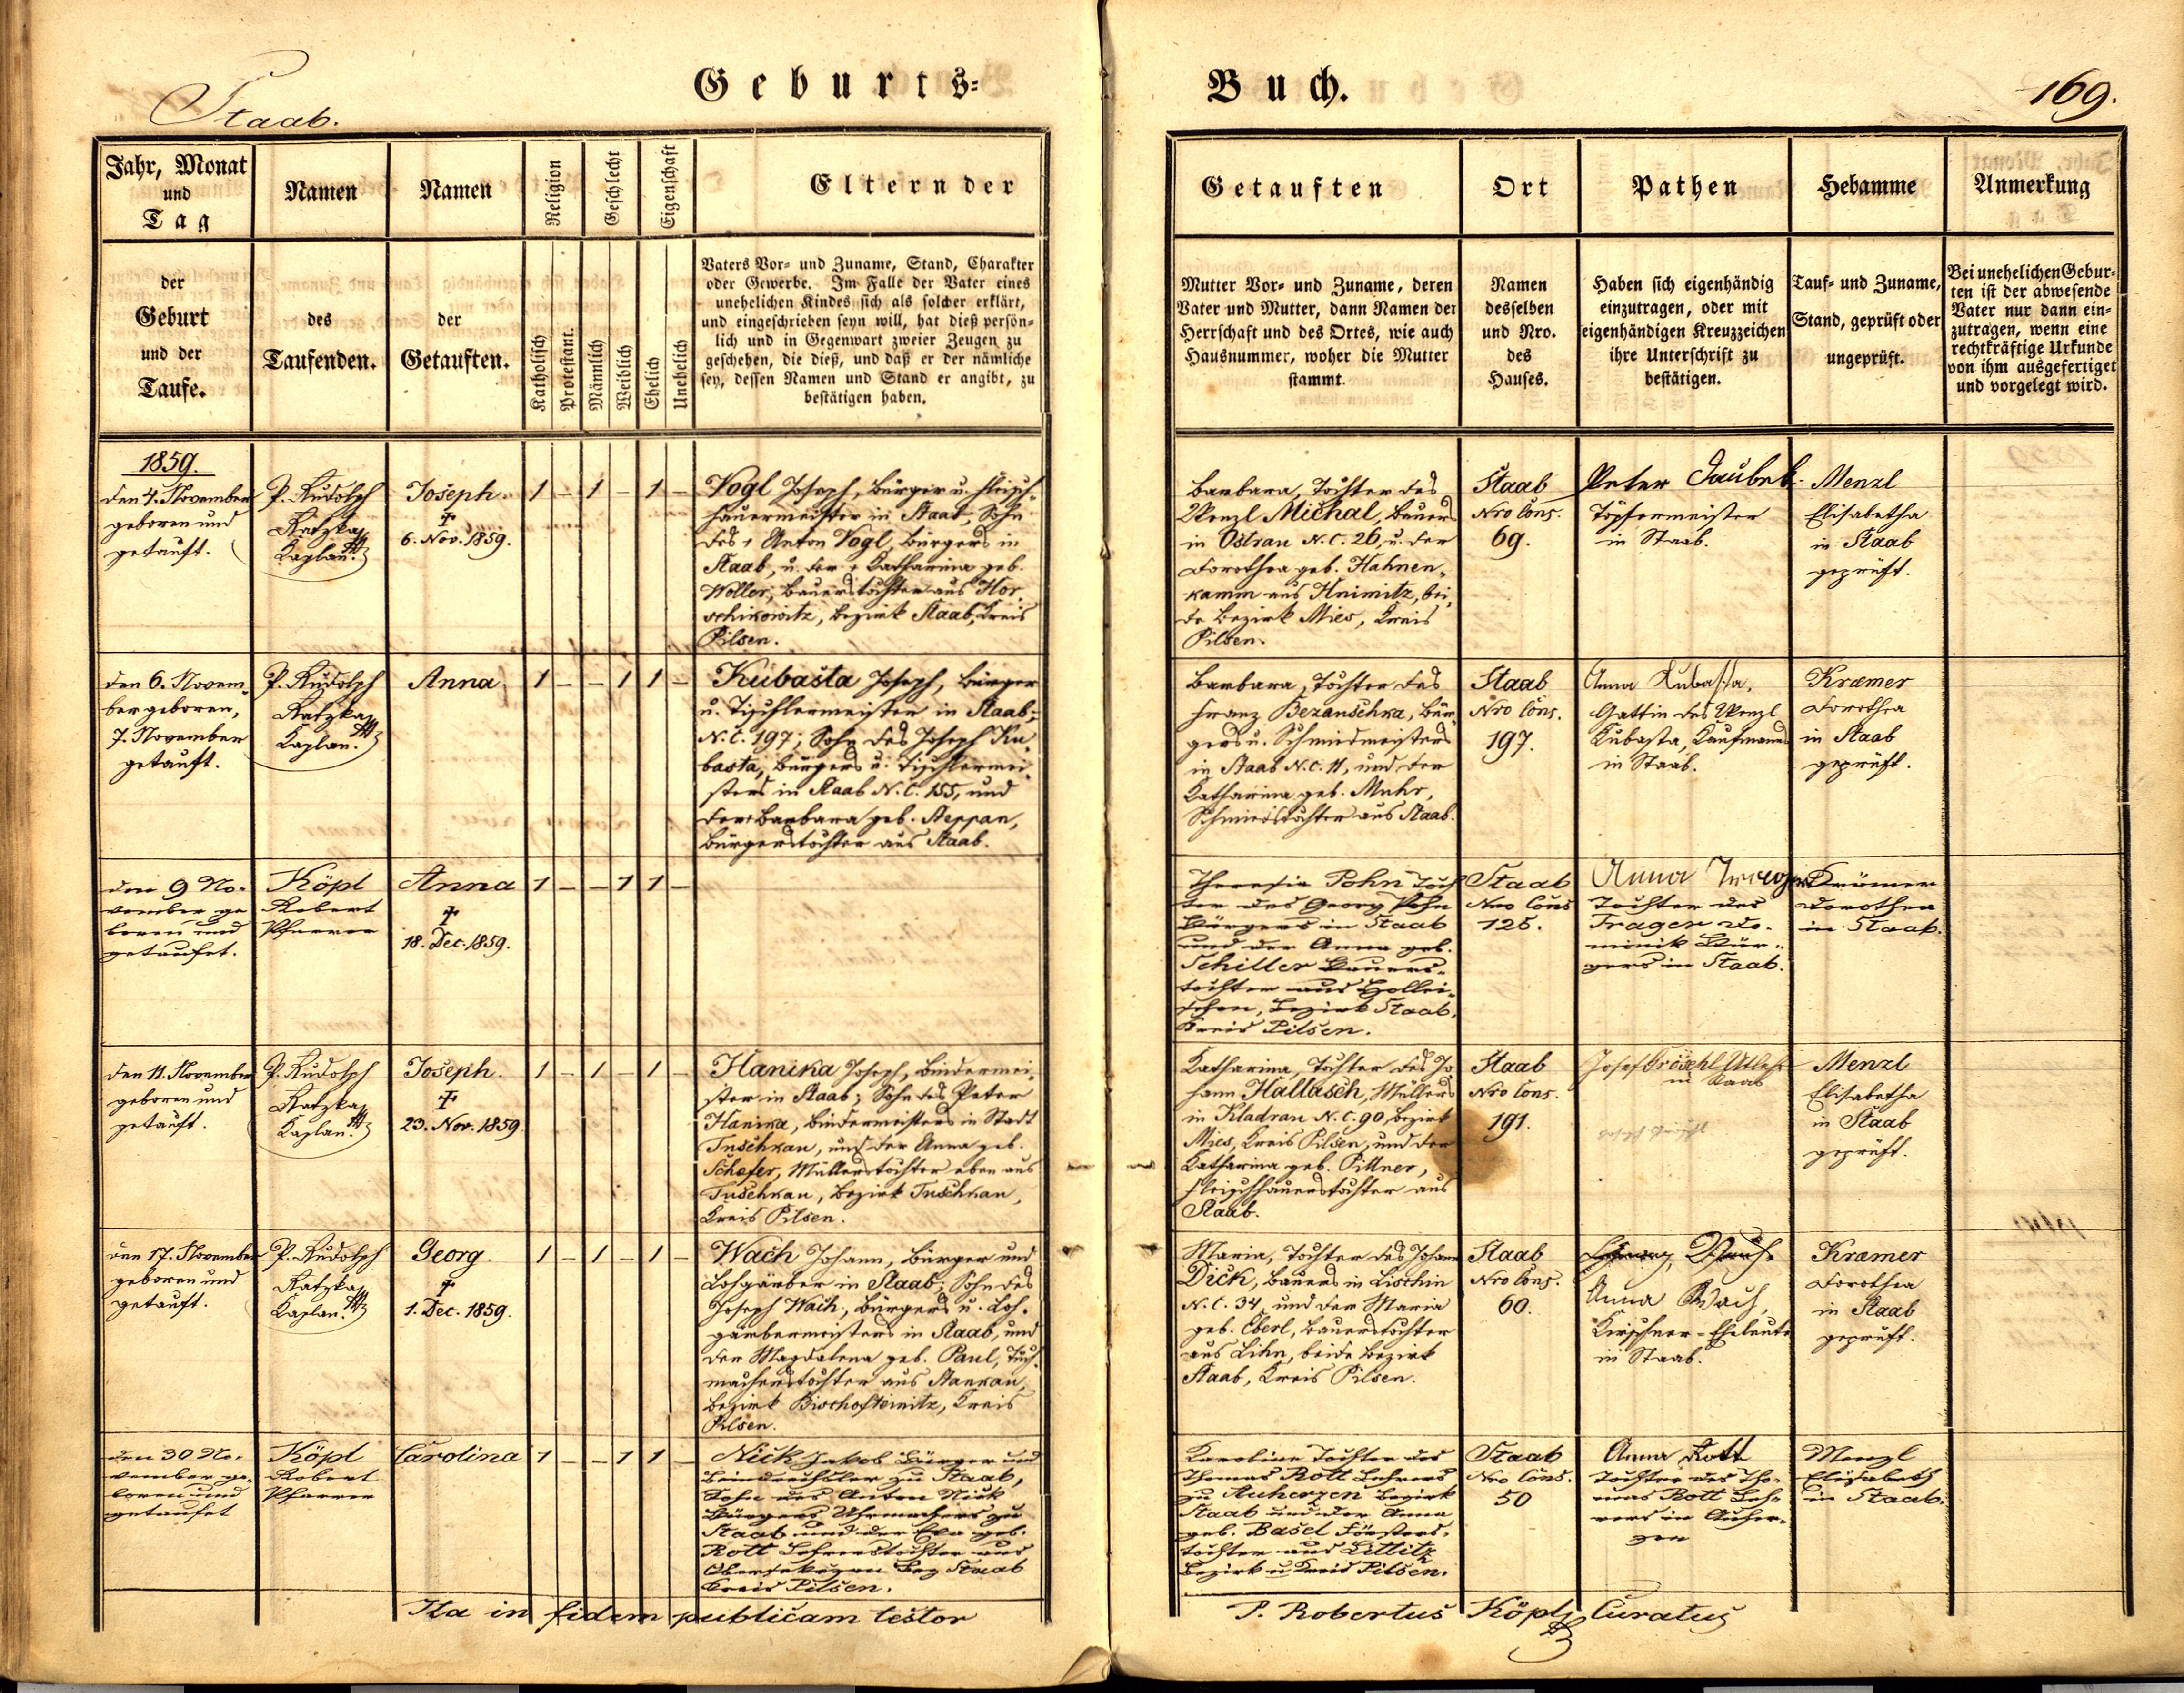 Geburts-
Buch.
Staab.
169.
Jahr, Monat
und
Tag
der
Geburt
und der
Taufe.
Namen
des
Taufenden.
Namen
der
Getauften.
Religion
Katholisch
Protestant.
Geschlecht
Männlich
Weiblich
Eigenschaft
Ehelich
Unehelich
Eltern der
Vaters Vor- und Zuname, Stand, Charakter
oder Gewerbe. Im Falle der Vater eines
unehelichen Kindes sich als solcher erklärt,
und eingeschrieben seyn will, hat dieß persön-
lich und in Gegenwart zweier Zeugen zu
geschehen, die dieß, und daß er der nämliche
sey, dessen Namen und Stand er angibt, zu
bestätigen haben.
Getauften
Mutter Vor- und Zuname, deren
Vater und Mutter, dann Namen der
Herrschaft und des Ortes, wie auch
Hausnummer, woher die Mutter
stammt.
Ort
Namen
desselben
und Nro.
des
Hauses.
Pathen
Haben sich eigenhändig
einzutragen, oder mit
eigenhändigen Kreuzzeichen
ihre Unterschrift zu
bestätigen.
Hebamme
Tauf- und Zuname,
Stand, geprüft oder
ungeprüft.
Anmerkung
Bei unehelichen Gebur-
ten ist der abwesende
Vater nur dann ein-
zutragen, wenn eine
rechtkräftige Urkunde
von ihm ausgefertiget
und vorgelegt wird.
1859.
den 4. November
geboren und
getauft.
P. Rudolph
Ratzka
Kaplan.
Joseph.
†
6. Nov. 1859.
1 – 1 – 1 –
Vogl Joseph, Bürger u. Fleisch-
hauermeister in Staab, Sohn
des † Anton Vogl, Bürgers in
Staab, u. der † Katharina geb.
Woller, Bauerstochter aus Hor-
schikowitz, Bezirk Staab, Kreis
Pilsen.
Barbara, Tochter des
Wenzl Michal, Bauers
in Ostrau N.C. 26, u. der
Dorothea geb. Hahnen-
kamm aus Hnimitz, bei-
de Bezirk Mies, Kreis
Pilsen.
Staab
Nro Cons.
69.
Peter Taubek
Töpfermeister
in Staab.
Menzl
Elisabetha
in Staab
geprüft.
den 6. Novem-
ber geboren,
7. November
getauft.
P. Rudolph
Ratzka
Kaplan.
Anna.
1 – – 1 1 –
Kubasta Joseph, Bürger
u. Tischlermeister in Staab
N.C. 197; Sohn des Joseph Ku-
basta, Bürgers u. Tischlermei-
sters in Staab N.C. 155, und
der † Barbara geb. Steppan,
Bürgerstochter aus Staab.
Barbara, Tochter des
Franz Bezanschka, Bür-
gers u. Schmiedmeisters
in Staab N.C. 11, und der
Katharina geb. Muhr,
Schmiedstochter aus Staab.
Staab
Nro Cons.
197.
Anna Kubasta,
Gattin des Wenzl
Kubasta, Kaufmanns
in Staab.
Kræmer
Dorothea
in Staab
geprüft.
den 9 No-
vember ge
boren und
getaufet.
Köpl
Robert
Pfarrer
Anna
†
18. Dec. 1859.
1 – – 1 1 –
Theresia Pohn Toch
ter des Georg Pohn
Bürgers in Staab
und der Anna geb.
Schiller Bauers-
tochter aus Hollei-
schen, Bezirk Staab,
Kreis Pilsen.
Staab
Nro Cons
125.
Anna Traeger
Tochter des
Trager Do-
minik Bür-
gers in Staab.
Krämer
Dorothea
in Staab.
den 11. November
geboren und
getauft.
P. Rudolph
Ratzka
Kaplan.
Joseph.
†
23. Nov. 1859
1 – 1 – 1 –
Hanika Joseph, Bindermei-
ster in Staab; Sohn des Peter
Hanika, Bindermeisters in Stadt
Tuschkau, und der Anna geb.
Schafer, Müllerstochter eben aus
Tuschkau, Bezirk Tuschkau,
Kreis Pilsen.
Katharina, Tochter des Jo-
hann Hallasch, Müllers
in Kladrau N.C. 90, Bezirk
Mies, Kreis Pilsen, und der
Katharina geb. Pittner,
Fleischhauerstochter aus
Staab.
Staab
Nro Cons.
191.
Josef Gröschl
in Staab
Menzl
Elisabetha
in Staab
geprüft.
den 17. November
geboren und
getauft.
P. Rudolph
Ratzka
Kaplan.
Georg.
†
1. Dec. 1859.
1 – 1 – 1 –
Wach Johann, Bürger und
Lohgärber in Staab; Sohn des
Joseph Wach, Bürgers u. Loh-
gärbermeisters in Staab, und
der Magdalena geb. Paul, Tuch-
macherstochter aus Stankau,
Bezirk Bischofteinitz, Kreis
Pilsen.
Maria, Tochter des Johann
Dick, Bauers in Lischin
N.C. 34, und der Maria
geb. Eberl, Bauerstochter
aus Lihn, beide Bezirk
Staab, Kreis Pilsen.
Staab
Nro Cons.
60.
Georg Wach
Anna Wach,
Kirschner-Eheleute
in Staab.
Kræmer
Dorothea
in Staab
geprüft.
den 30 No-
vember ge-
boren und
getaufet
Köpl
Robert
Pfarrer
Carolina
1 – – 1 1 –
Nick Jakob Bürger und
Beindrechsler zu Staab,
Sohn des Anton Nick
Bürgers Uhrmachers zu
Staab und der Eva geb.
Rott Lehrerstochter aus
Obersekeran Bez Staab
Kreis Pilsen.
Karoline Tochter des
Thomas Rott Lehrers
zu Auherzen Bezirk
Staab und der Anna
geb. Basel Försters-
tochter aus Littitz
Bezirk u Kreis Pilsen.
Staab
Nro Cons.
50
Anna Rott
Tochter des Tho-
mas Rott Leh-
rers in Auher-
zen
Menzl
Elisabeth
in Staab.
Ita in fidem publicam testor
P. Robertus Köpl Curatus